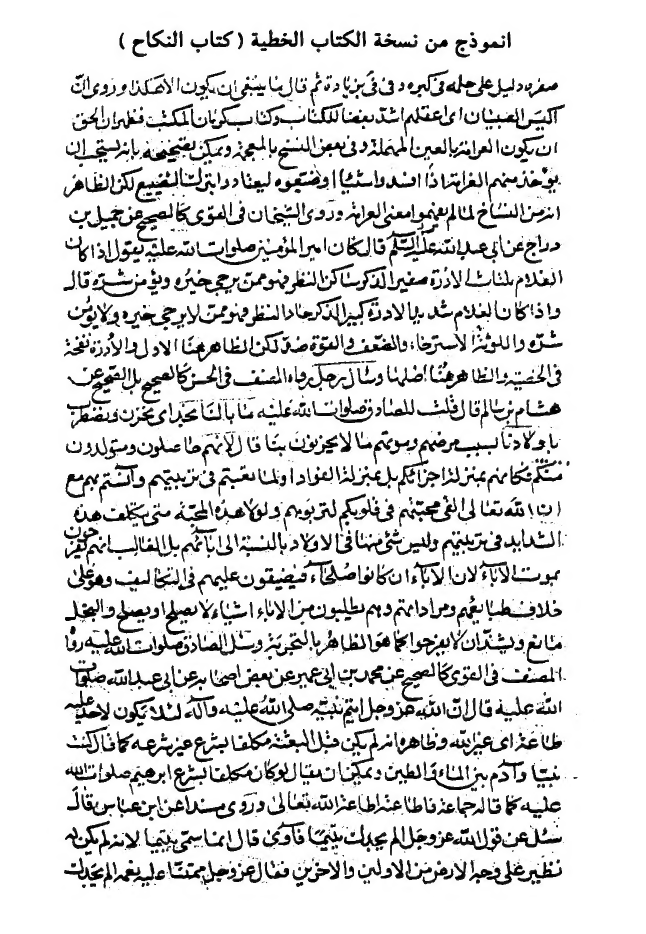 انموذج من نسخة الكتاب الخطية ( كتاب النكاح )
صغره دليل على حلمه فى كبره و فى ثم قال ما ينبغى ان يكون الا هكذا وروى انّ
اكيس الصبيان اى اعقلهم اشد بغضا للكتاب وكتاب كرمان المكتب فظهر ان الحق
ان يكون العرامة بالعين المهملة وفى بعض النسخ بالمعجمة ويمكن تصحيحه بانه يستحب ان
يؤخذ منهم الغرامة اذا افسدوا شيئا او ضيعوه ليعتادوا بترك التضييع لكن الظاهر
انه من النساخ لما لم يفهموا معنى العرامة وروى الشيخان فى القوى كالصحيح عن جميل بن
دراج عن ابى عبد الله عليه السلم قال كان امير المؤمنين صلوات الله عليه يقول اذا كان
الغلام ملتاث الادرة صغير الذكر ساكن النظر فهو ممن يرجى خيره ويؤمن شره قال
واذا كان الغلام شديد الادرة كبير الذكر حاد النظر فهو ممن لا يرجى خيره ولا يؤمن
شره واللوثة الاسترخاء والضعف والقوة ضد لكن الظاهر هنا الاول والادرة نفخة
فى الخصية والظاهر هنا اصلها وسأل رجل رواه المصنف فى الحسن كالصحيح بل الصحيح عن
هشام بن سالم قال قلت للصادق صلوات الله عليه ما بالنا نجد اى نحزن ونضطرب
باولادنا بسبب مرضهم وموتهم ما لا يحزنون بنا قال لانهم حاصلون ومتولدون
منكم فكانهم بمنزلة اجزائكم بل بمنزلة الفؤاد او لما تعبتم فى تربيتهم وآنستم بهم مع
ان الله تعالى القى محبتهم فى قلوبكم لتربوهم ولولا هذه المحبة متى يتكلف هذه
الشدايد فى تربيتهم وليس شئ منها فى الاولاد بالنسبة الى ابائهم بل الغالب انهم يفرحون
بموت الآباء لان الآباء ان كانوا صلحاء فيضيقون عليهم فى التكاليف وهو على
خلاف طبايعهم ومراداتهم وهم يطلبون من الاباء اشياء لا يصلح او يصلح والبخل
مانع ويشتد ان لا يفرحوا كما هو الظاهر بالتجربة وسئل الصادق صلوات الله عليه رواه
المصنف فى القوى كالصحيح عن محمد بن ابى عمير عن بعض اصحابه عن ابى عبد الله صلوات
الله عليه قال انّ الله عز وجل ايتم نبيه صلى الله عليه وآله لئلا يكون لاحد عليه
طاعة اى غير الله وظاهره انه لم يكن قبل البعثة مكلفا بشرع غير شرعه كما قال كنت
نبيا وآدم بين الماء والطين ويمكن ان يقال لو كان مكلفا بشرع ابرهيم صلوات الله
عليه كما قاله جماعة فاطاعته اطاعة الله تعالى وروى مسندا عن ابن عباس قال
سئل عن قول الله عز وجل الم يجدك يتيما فآوى قال انما سمى يتيما لانه لم يكن له
نظير على وجه الارض من الاولين والاخرين فقال عز وجل ممتنا عليه نعمه الم يجدك